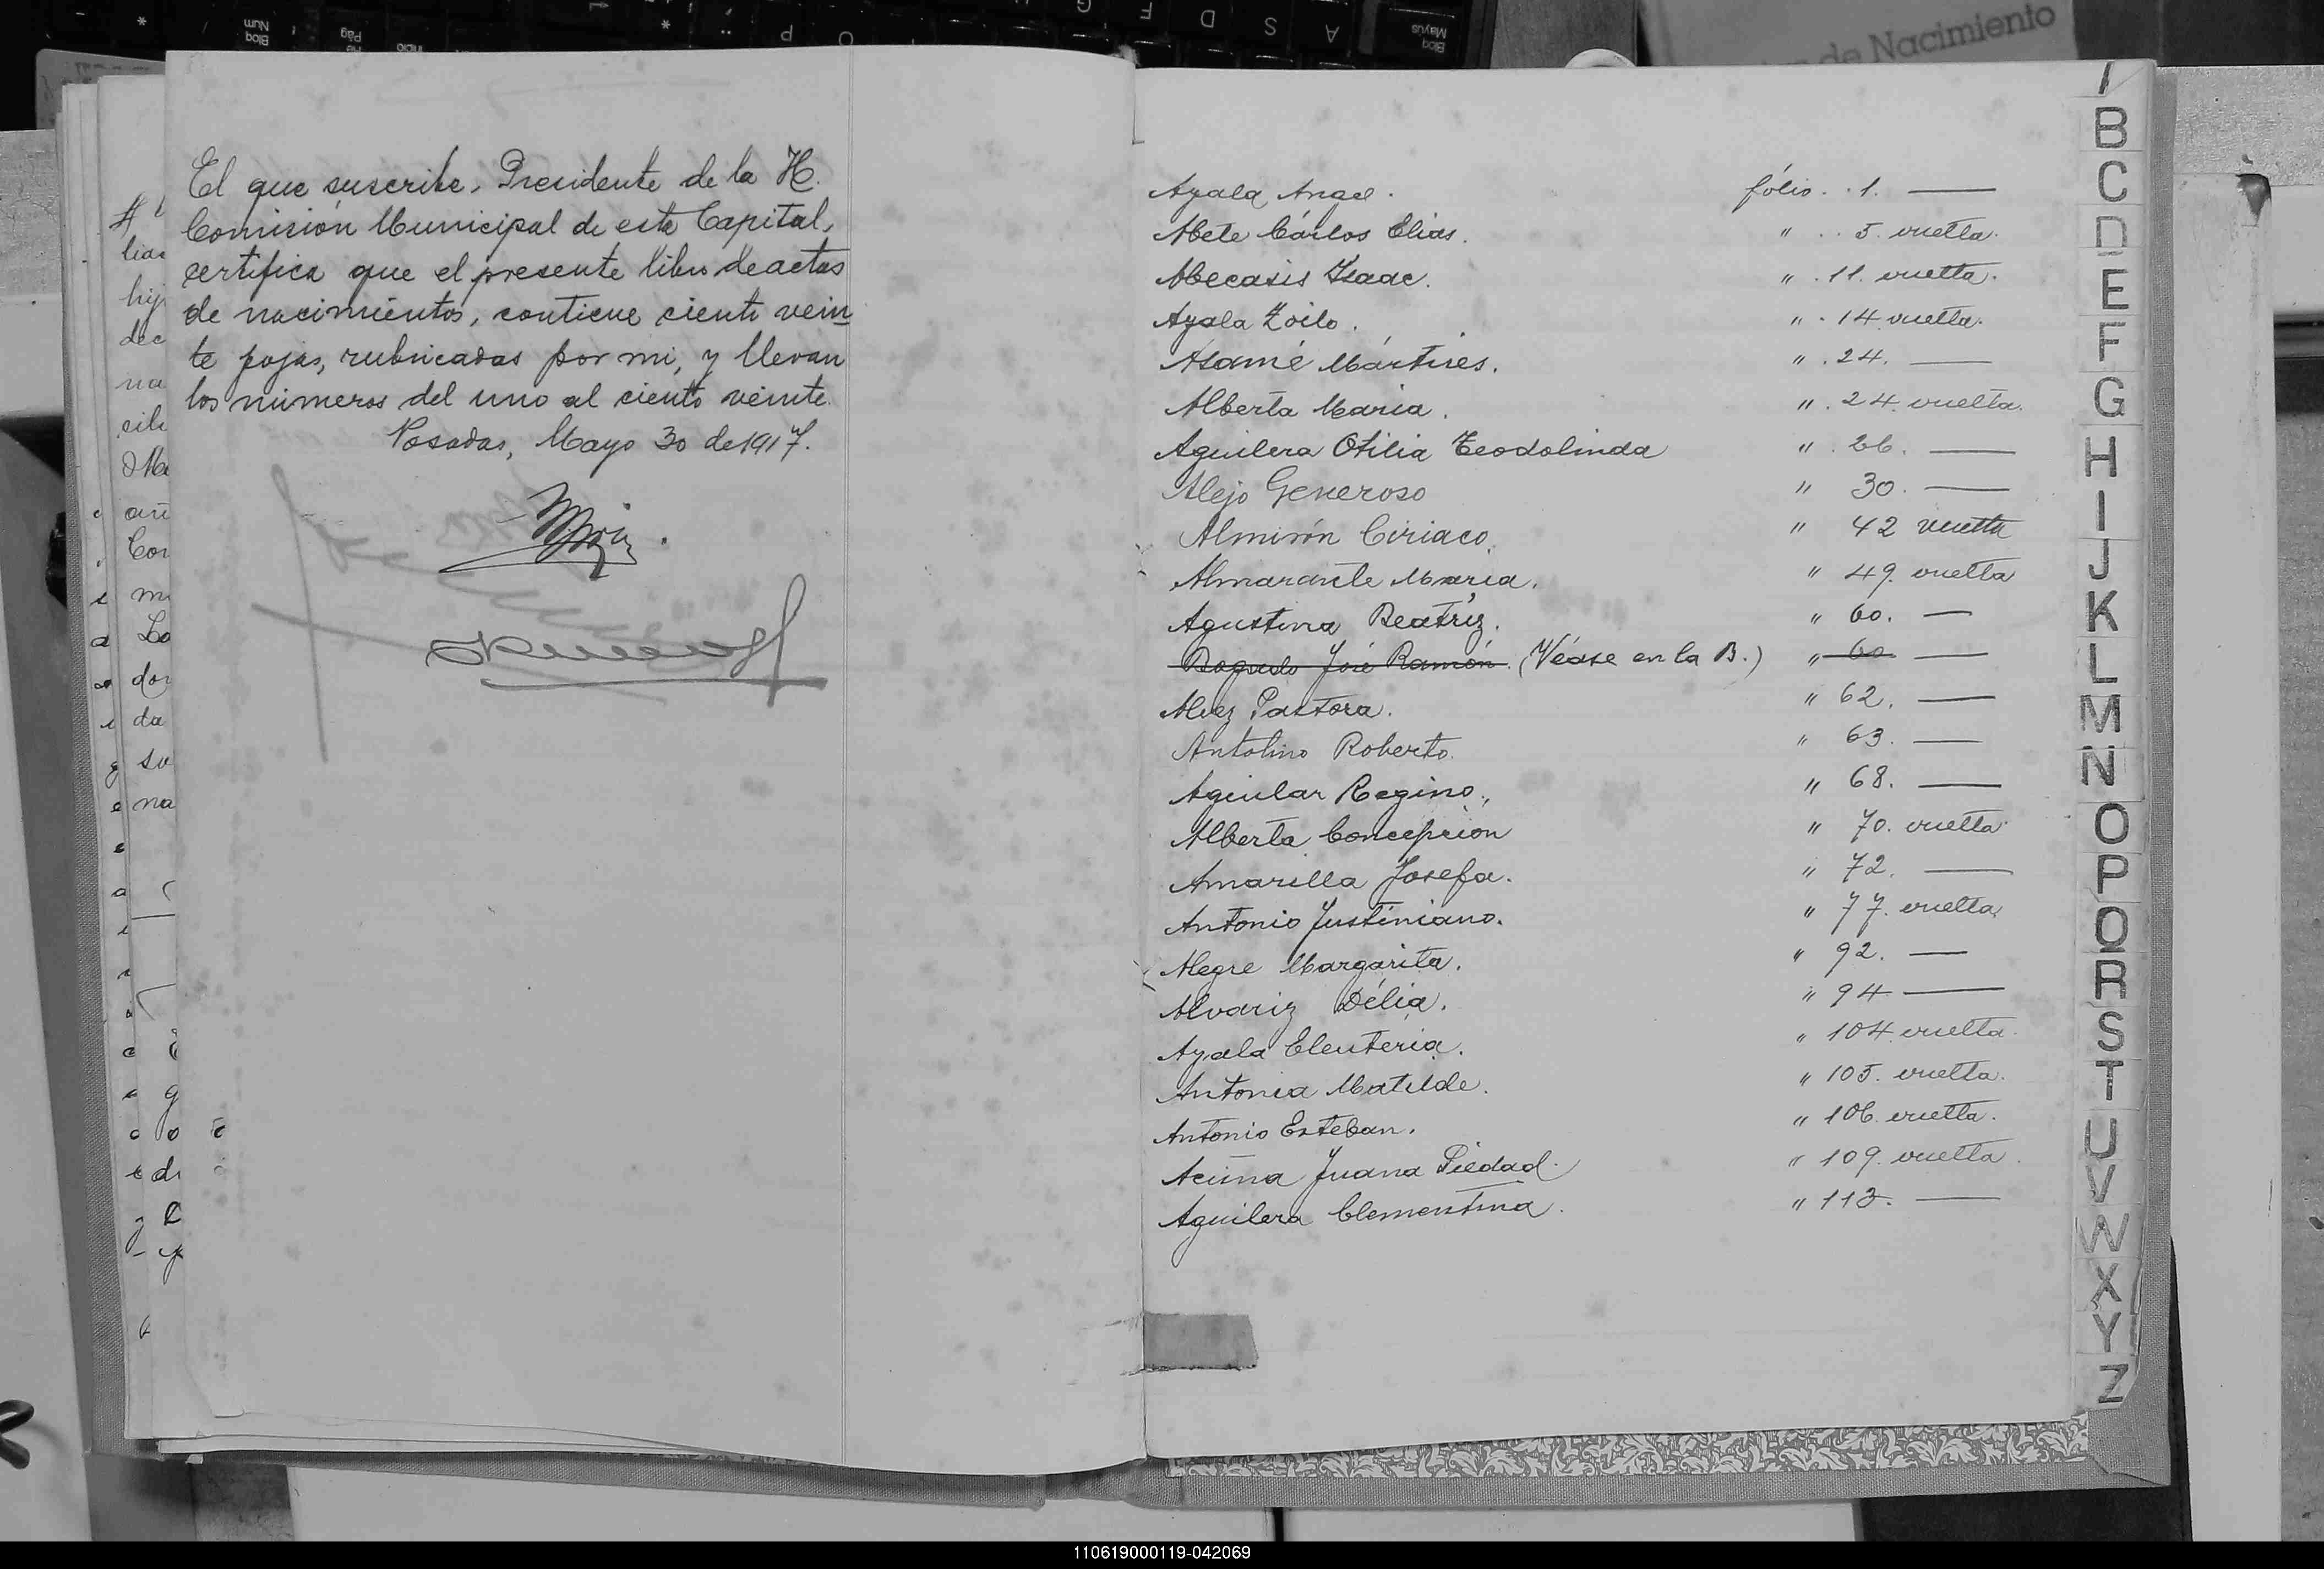 El que suscribe, Presidente de la H.
Comisión Municipal de esta Capital,
certifica que el presente libro de actas
de nacimientos, contiene ciento vein
te fojas, rubricadas por mi, y llevan
los números del uno al ciento veinte.
Posadas, Mayo 30 de 1917.
Ayala Angel. fólio. 1. —
Abete Cárlos Elias. " 5. vuelta.
Abecasis Isaac. " 11. vuelta.
Ayala Zoilo. " 14 vuelta.
Asamé Mártires. " 24. —
Alberta Maria. " 24. vuelta.
Aguilera Otilia Teodolinda " 26. —
Alejo Generoso " 30. —
Almirón Ciriaco. " 42 vuelta
Almarante Maria. " 49. vuelta
Agustina Beatriz. " 60. —
José Ramón. (Véase en la B.) " 60 —
Alvez Pastora. " 62. —
Antolino Roberto. " 63. —
Aguilar Regino. " 68. —
Alberta Concepcion " 70. vuelta
Amarilla Josefa. " 72. —
Antonio Justiniano. " 77. vuelta
Alegre Margarita. " 92. —
Alvariz Délia. " 94 —
Ayala Eleuteria. " 104 vuelta.
Antonia Matilde. " 105. vuelta.
Antonio Esteban. " 106. vuelta.
Acuña Juana Piedad. " 109. vuelta.
Aguilera Clementina. " 113. —
B
C
D
E
F
G
H
I
J
K
L
M
N
O
P
Q
R
S
T
U
V
W
X
Y
Z
de Nacimiento
110619000119-042069